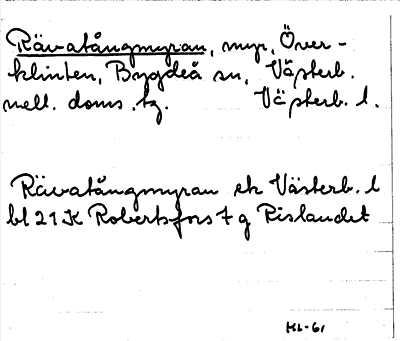 Rävatångmyran, myr, Över-
klinten, Bygdeå sn, Västerb.
mell. doms. tg. Västerb. l.
Rävatångmyran ek Västerb. l
bl 21 K Robertsfors 7 g Rislandet
KL-61